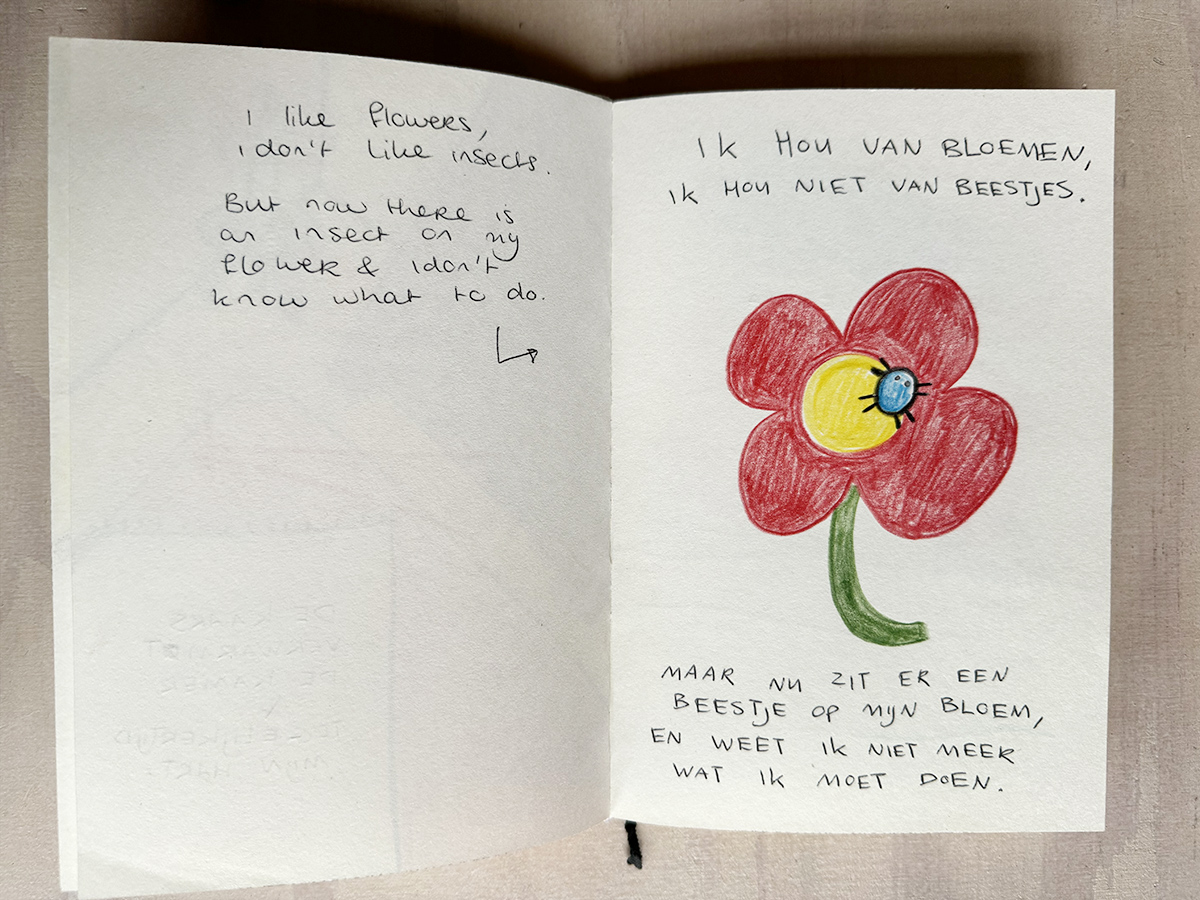 I like flowers,
i don't like insects.
But now there is
an insect on my
flower & i don't
know what to do.
IK HOU VAN BLOEMEN,
IK HOU NIET VAN BEESTJES.
MAAR NU ZIT ER EEN
BEESTJE OP MIJN BLOEM,
EN WEET IK NIET MEER
WAT IK MOET DOEN.
DE KAARS
VERWARMT
DE KAMER
&
TEGELIJKERTIJD
MIJN HART.